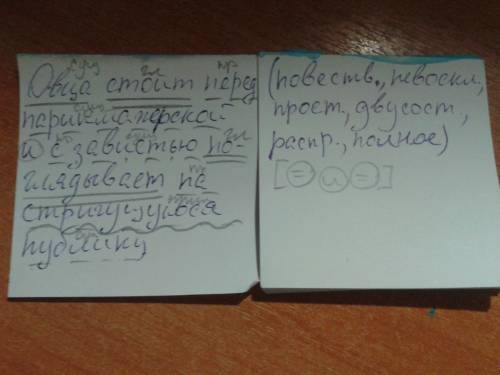 Овца стоит перед
парикмахерской
и с завистью по-
глядывает на
стригущуюся
публику
(повеств., невоскл.,
прост., двусост.,
распр., полное)
[= и =]